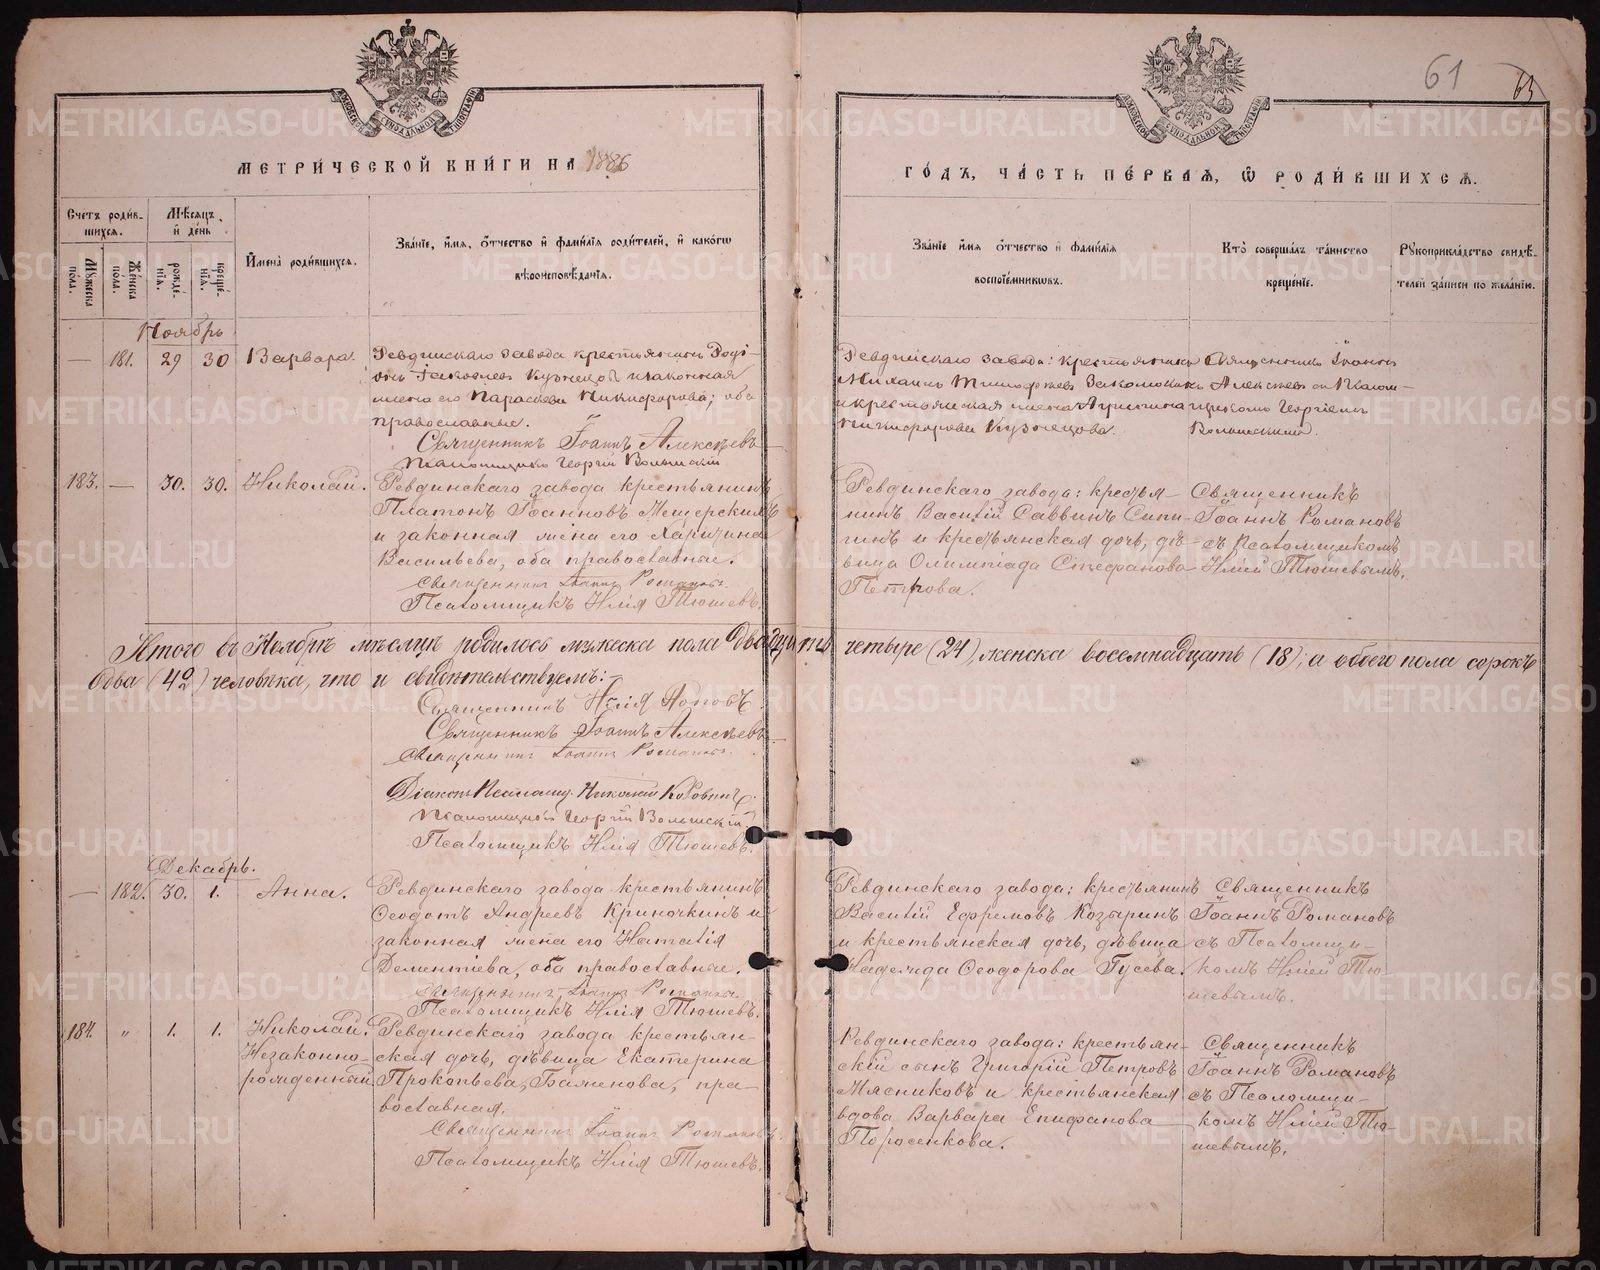 61
МЕТРИ́ЧЕСКОЙ КНИ́ГИ НА 1886
ГО́ДЪ, ЧА́СТЬ ПЕ́РВАѦ, Ѿ РОДИ́ВШИХСѦ.
Счетъ роди́в-
шихсѧ.
Мѣсѧцъ
и҆ де́нь
Мꙋжеска
пола.
Же́нска
пола.
рожде́-
нїѧ.
креще́-
нїѧ.
И҆мена̀ роди́вшихсѧ.
Зва́нїе, и҆́мѧ, ѻ҆́тчество и҆ фами́лїѧ роди́телей, и҆ како́гѡ
вѣроисповѣ́данїѧ.
Зва́нїе и҆́мѧ ѻ҆́тчество и҆ фами́лїѧ
воспрїе́мникѡвъ.
Кто̀ соверша́лъ та́инство
креще́нїѧ.
Рꙋкоприкла́дство свидѣ́-
телей за́писи по жела́нїю.
Ноябрь
— 181. 29 30 Варвара.
Ревдинскаго завода крестьянинъ Роді-
онъ Іаковлевъ Кузнецовъ и законная
жена его Параскева Никифорова; оба
православные.
Священникъ Іоаннъ Алексѣевъ
Псаломщикъ Георгій Волынскій
Ревдинскаго завода: крестьянинъ
Михаилъ Тимофеевъ
и крестьянская жена Агрипина
Никифорова Кузнецова.
Священникъ Іоаннъ
Алексѣевъ съ Псалом-
щикомъ Георгіемъ
Волынскимъ.
183. — 30. 30. Николай.
Ревдинскаго завода крестьянинъ
Платонъ Іоанновъ Мещерскихъ
и законная жена его Харитина
Васильева, оба православные.
Священникъ Іоаннъ Романовъ.
Псаломщикъ Илія Тюшевъ.
Ревдинскаго завода: крестья-
нинъ Василій Саввинъ Сипи-
гинъ и крестьянская дочь, дѣ-
вица Олимпіада Стефанова
Петрова.
Священникъ
Іоаннъ Романовъ
съ Псаломщикомъ
Иліей Тюшевымъ.
Итого въ Ноябрѣ мѣсяцѣ родилось мужеска пола двадцать четыре (24), женска восемнадцать (18); а обоего пола сорокъ
два (42) человѣка, что и свидѣтельствуемъ:
Священникъ Илія Поповъ
Священникъ Іоаннъ Алексѣевъ
Священникъ Іоаннъ Романовъ.
Діаконъ Псаломщ. Николай Коровинъ.
Псаломщикъ Георгій Волынскій
Псаломщикъ Илія Тюшевъ.
Декабрь.
— 182. 30. 1. Анна.
Ревдинскаго завода крестьянинъ
Ѳеодотъ Андреевъ Криночкинъ и
законная жена его Наталія
Дементіева, оба православные.
Священникъ Іоаннъ Романовъ.
Псаломщикъ Илія Тюшевъ.
Ревдинскаго завода: крестьянинъ
Василій Ефремовъ Козыринъ
и крестьянская дочь, дѣвица
Надежда Ѳеодорова Гусева.
Священникъ
Іоаннъ Романовъ
съ Псаломщи-
комъ Иліей Тю-
шевымъ.
184. „ 1. 1. Николай.
Незаконно-
рожденный
Ревдинскаго завода крестьян-
ская дочь, дѣвица Екатерина
Прокопьева, Баженова, пра-
вославная.
Священникъ Іоаннъ Романовъ.
Псаломщикъ Илія Тюшевъ.
Ревдинскаго завода: крестьян-
скій сынъ Григорій Петровъ
Мясниковъ и крестьянская
вдова Варвара Епифанова
Поросенкова.
Священникъ
Іоаннъ Романовъ
съ Псаломщи-
комъ Иліей Тю-
шевымъ.
METRIKI.GASO-URAL.RU